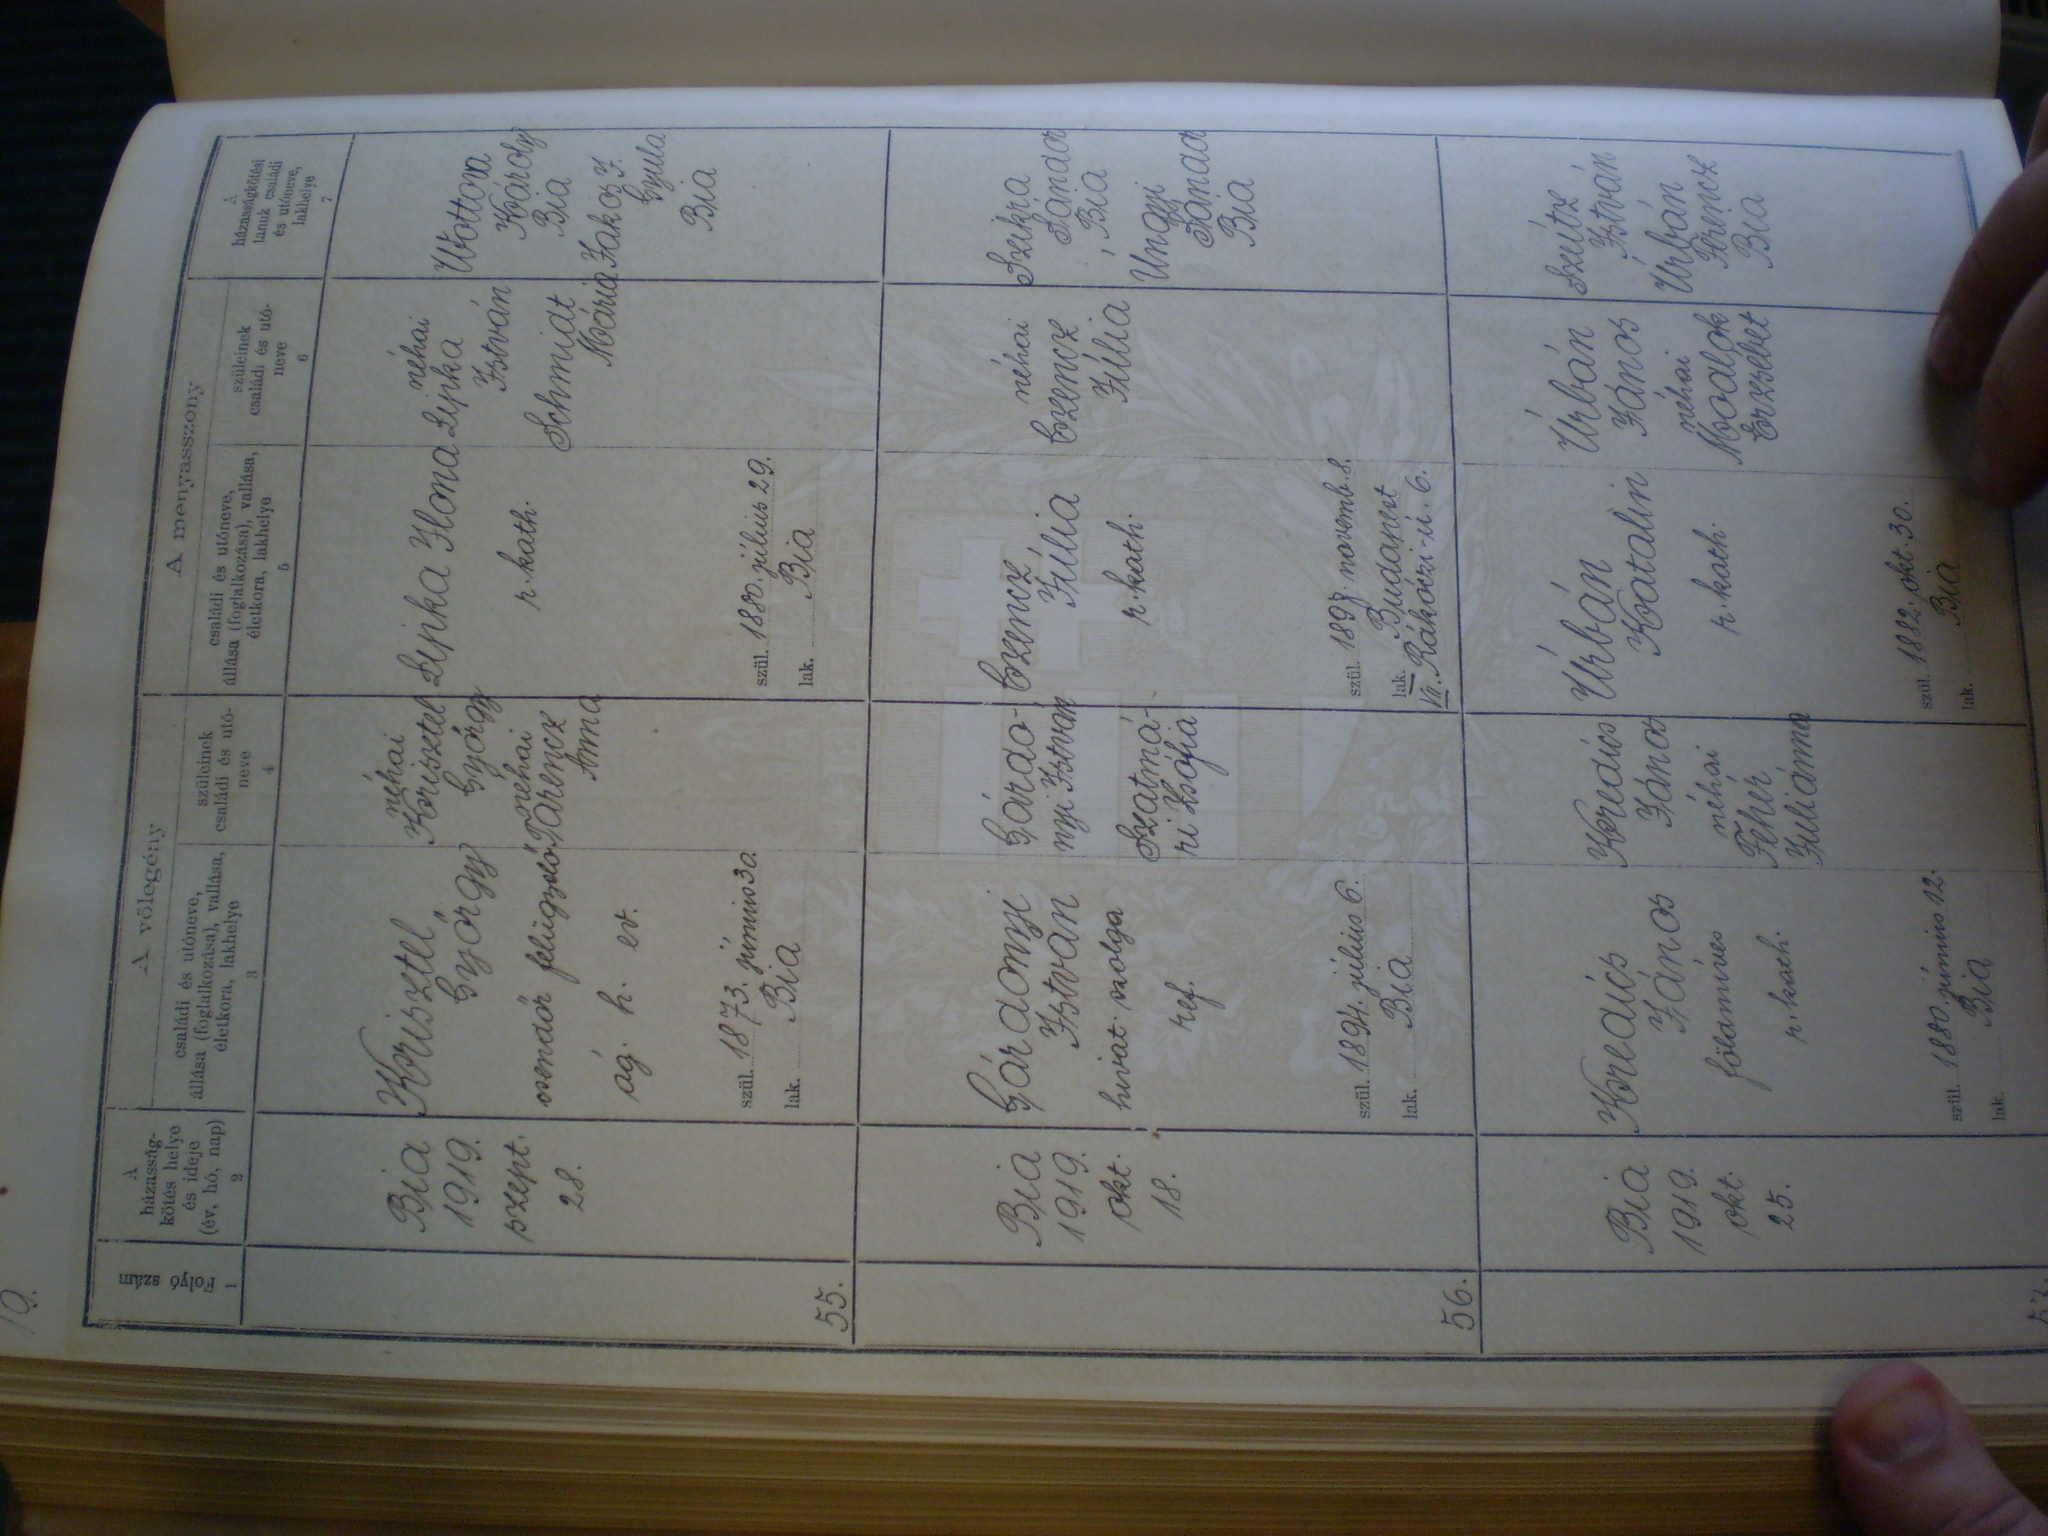 19.
Folyó
szám
1
A
házasság-
kötés helye
és ideje
(év, hó, nap)
2
A vőlegény
családi és utóneve,
állása (foglalkozása), vallása,
életkora, lakhelye
3
szüleinek
családi és utó-
neve
4
A menyasszony
családi és utóneve,
állása (foglalkozása), vallása,
életkora, lakhelye
5
szüleinek
családi és utó-
neve
6
A
házasságkötési
tanuk családi
és utóneve,
lakhelye
7
55.
Bia
1919.
szept.
28.
Krisztel
György
csendőr felügyelő
ág. h. ev.
szül. 1873. június 30.
lak. Bia
néhai
Krisztel
György
néhai
Anna
Lipka Ilona
r. kath.
szül. 1880. július 29.
lak. Bia
néhai
Lipka
István
Schmidt
Mária
Wottova
Károly
Bia
Jakos F.
Gyula
Bia
56.
Bia
1919.
okt.
18.
Gárdonyi
István
hivat. szolga
ref.
szül. 1894. július 6.
lak. Bia
Gárdo-
nyi István
Szatmá-
ri Zsófia
Czencz
Júlia
r. kath.
szül. 1897. novemb. 8.
lak. Budapest
VII. Rákóczi-ú. 6.
néhai
Czencz
Júlia
Szikra
Sándor
Bia
Ungi
Sándor
Bia
57.
Bia
1919.
okt.
25.
Kredics
János
földmíves
r. kath.
szül. 1880. június 12.
lak. Bia
Kredics
János
néhai
Fehér
Juliánna
Urbán
Katalin
r. kath.
szül. 1882. okt. 30.
lak. Bia
Urbán
János
néhai
Modlok
Erzsébet
Szeitz
István
Urbán
Ferencz
Bia